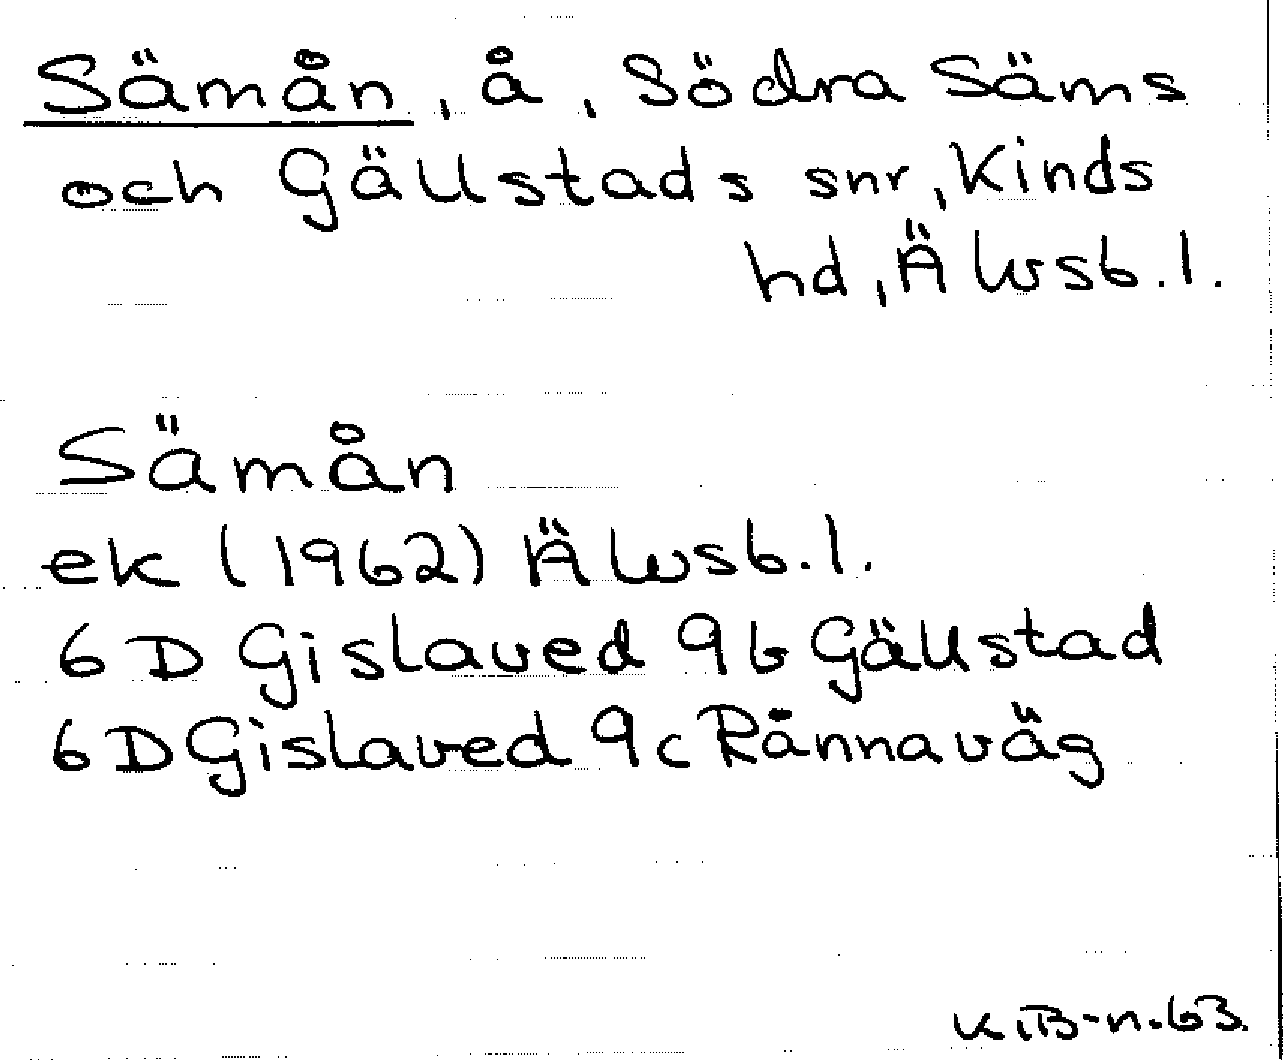 Sämån, å, Södra Säms
och Gällstads snr, Kinds
hd, Älvsb.l.
Sämån
ek (1962) Älvsb.l.
6D Gislaved 9b Gällstad
6D Gislaved 9c Rånnaväg
K.B-n.63.